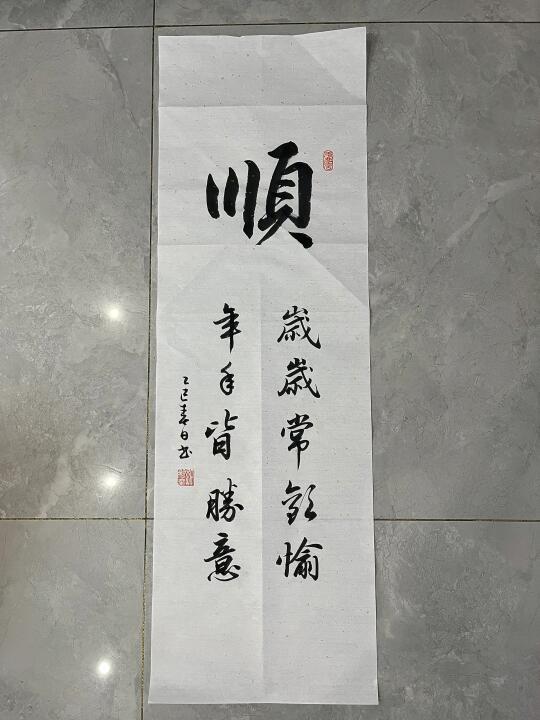 順
歲歲常歡愉
年年皆勝意
乙巳春日书